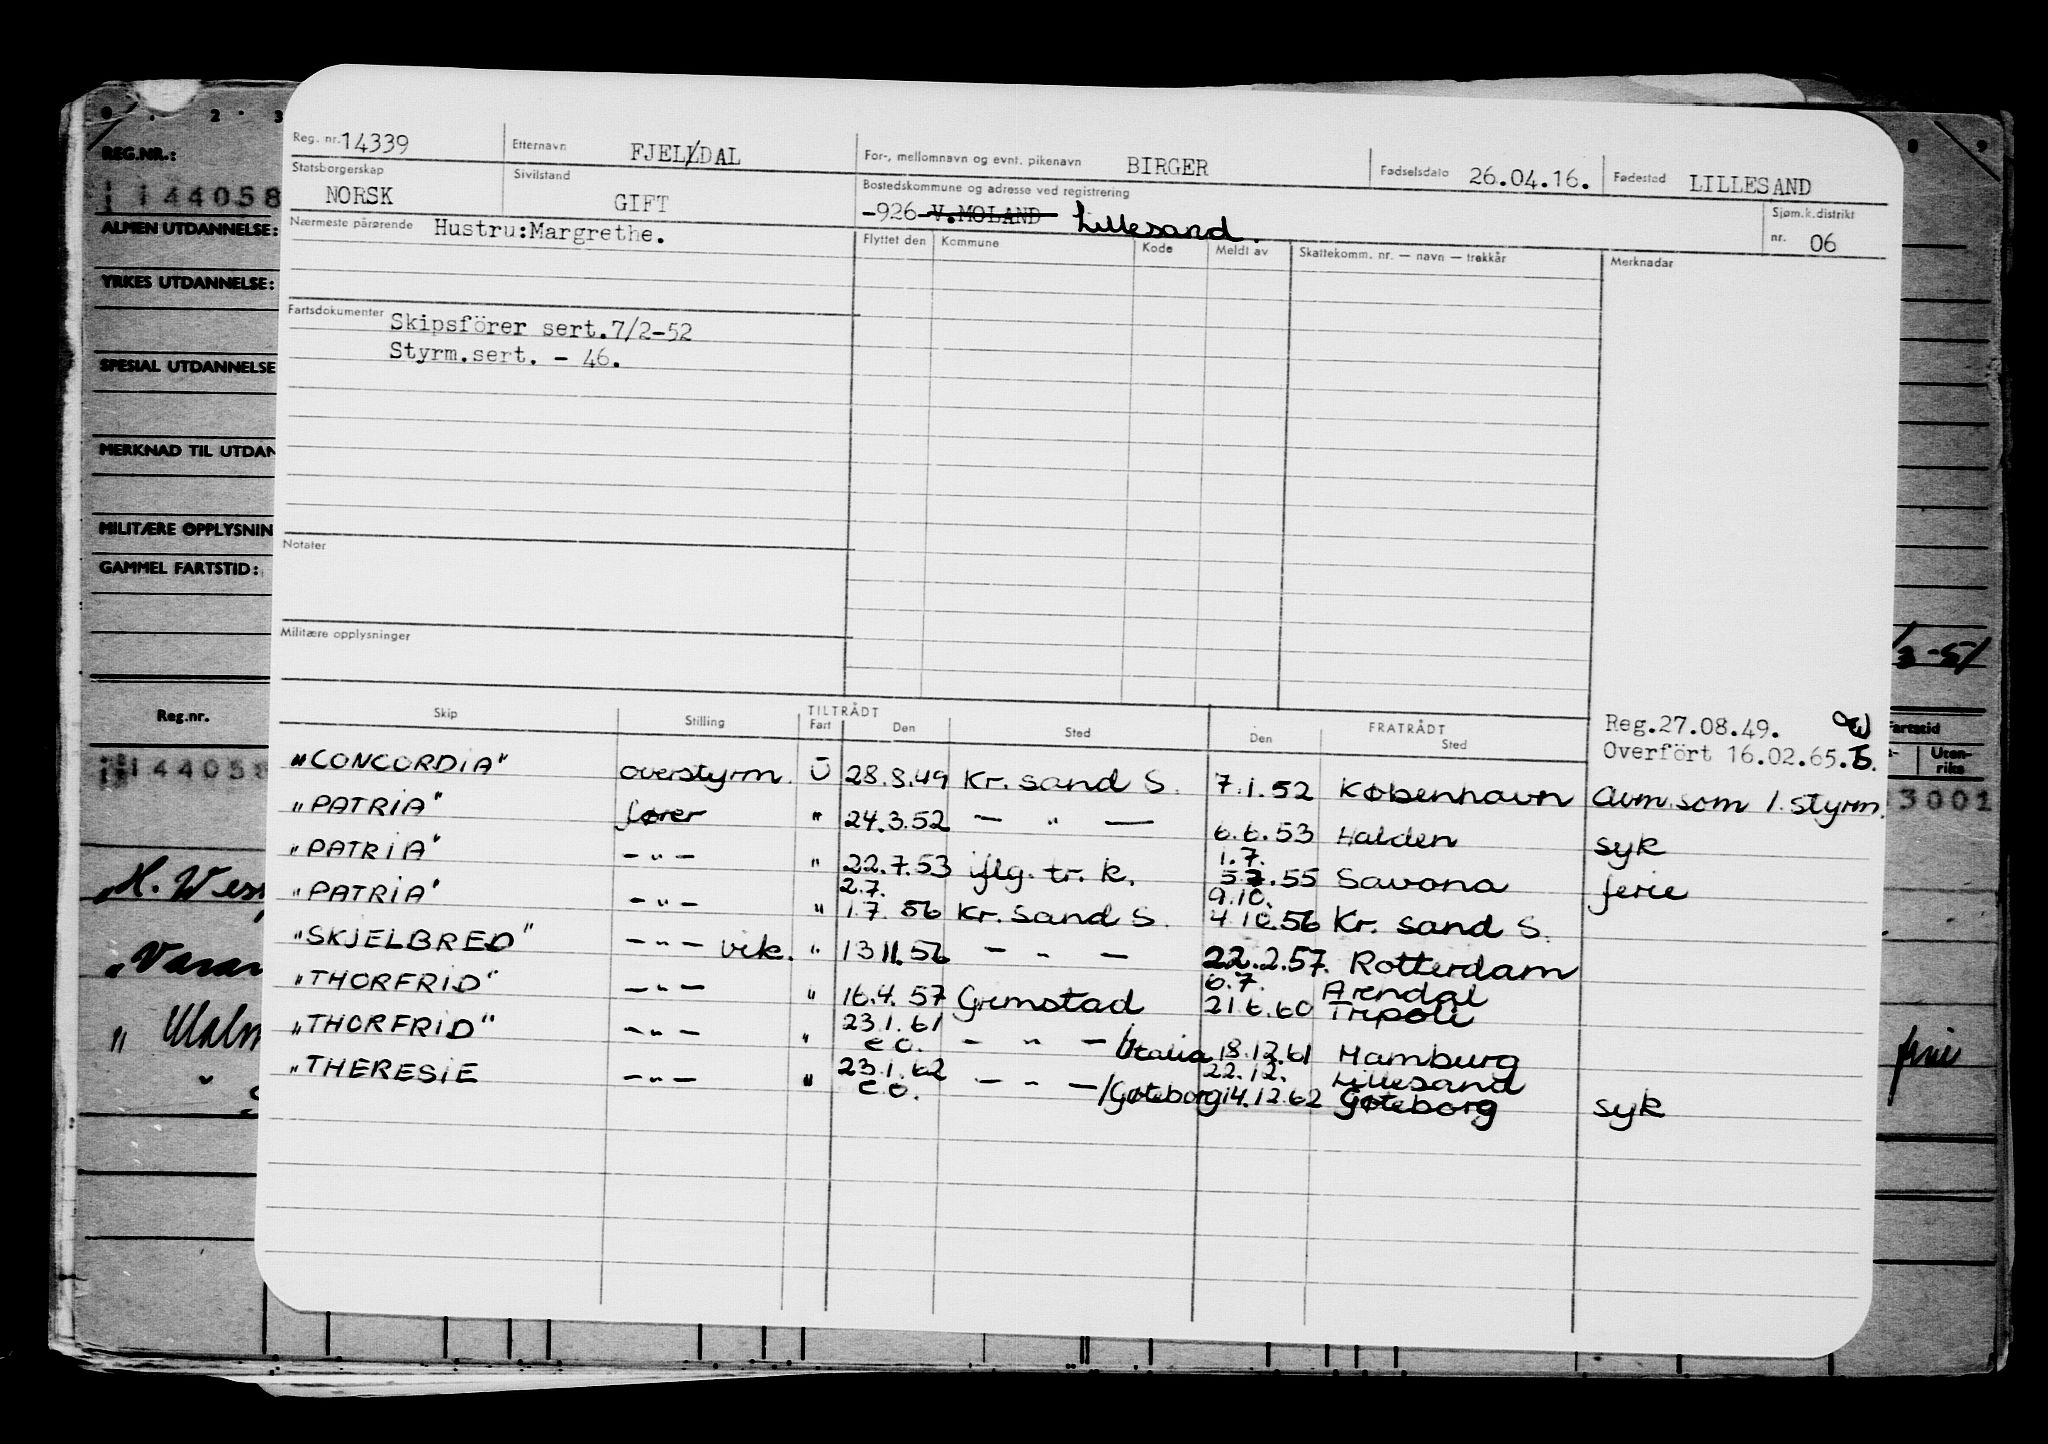 Reg. nr. 14339 Etternavn FJELLDAL For-, mellomnavn og evnt. pikenavn BIRGER Fødselsdato 26.04.16. Fødested LILLESAND
Statsborgerskap NORSK Sivilstand GIFT Bostedskommune og adresse ved registrering -926 V.MOLAND Lillesand. Sjøm.k.distrikt nr. 06
Nærmeste pårørende Hustru:Margrethe. Flyttet den Kommune Kode Meldt av Skattekomm. nr. — navn — trekkår Merknader
Fartsdokumenter Skipsförer sert.7/2-52
Styrm.sert. - 46.
Notater
Militære opplysninger
Reg.27.08.49.
Overfört 16.02.65.
TILTRÅDT FRATRÅDT
Skip Stilling Fart Den Sted Den Sted
"CONCORDIA" overstyrm. U 28.8.49 Kr. sand S. 7.1.52 København Avm. som 1. styrm.
"PATRIA" fører " 24.3.52 — " — 6.6.53 Halden syk
"PATRIA" — " — " 22.7.53 iflg. tr. k. 1.7. 5.7.55 Savona ferie
"PATRIA" — " — " 2.7. 1.7.56 Kr. sand S. 9.10. 4.10.56 Kr. sand S.
"SKJELBRED" — " — vik. " 13.11.56 — " — 22.2.57. Rotterdam
"THORFRID" — " — " 16.4.57 Grimstad 6.7. 21.6.60 Arendal Tripoli
"THORFRID" — " — " 23.1.61 e.o. — " — /Italia 18.12.61 Hamburg
"THERESIE — " — " 23.1.62 e.o. — " — /Gøteborg 22.12. 14.12.62 Lillesand Gøteborg syk
REG.NR.:
144058
ALMEN UTDANNELSE:
YRKES UTDANNELSE:
SPESIAL UTDANNELSE
MERKNAD TIL UTDAN
MILITÆRE OPPLYSNIN
GAMMEL FARTSTID:
/3-51
Reg.nr.
Fartstid
Uten-
riks
144058
3002
"H. Wes
"Varan
" Malm